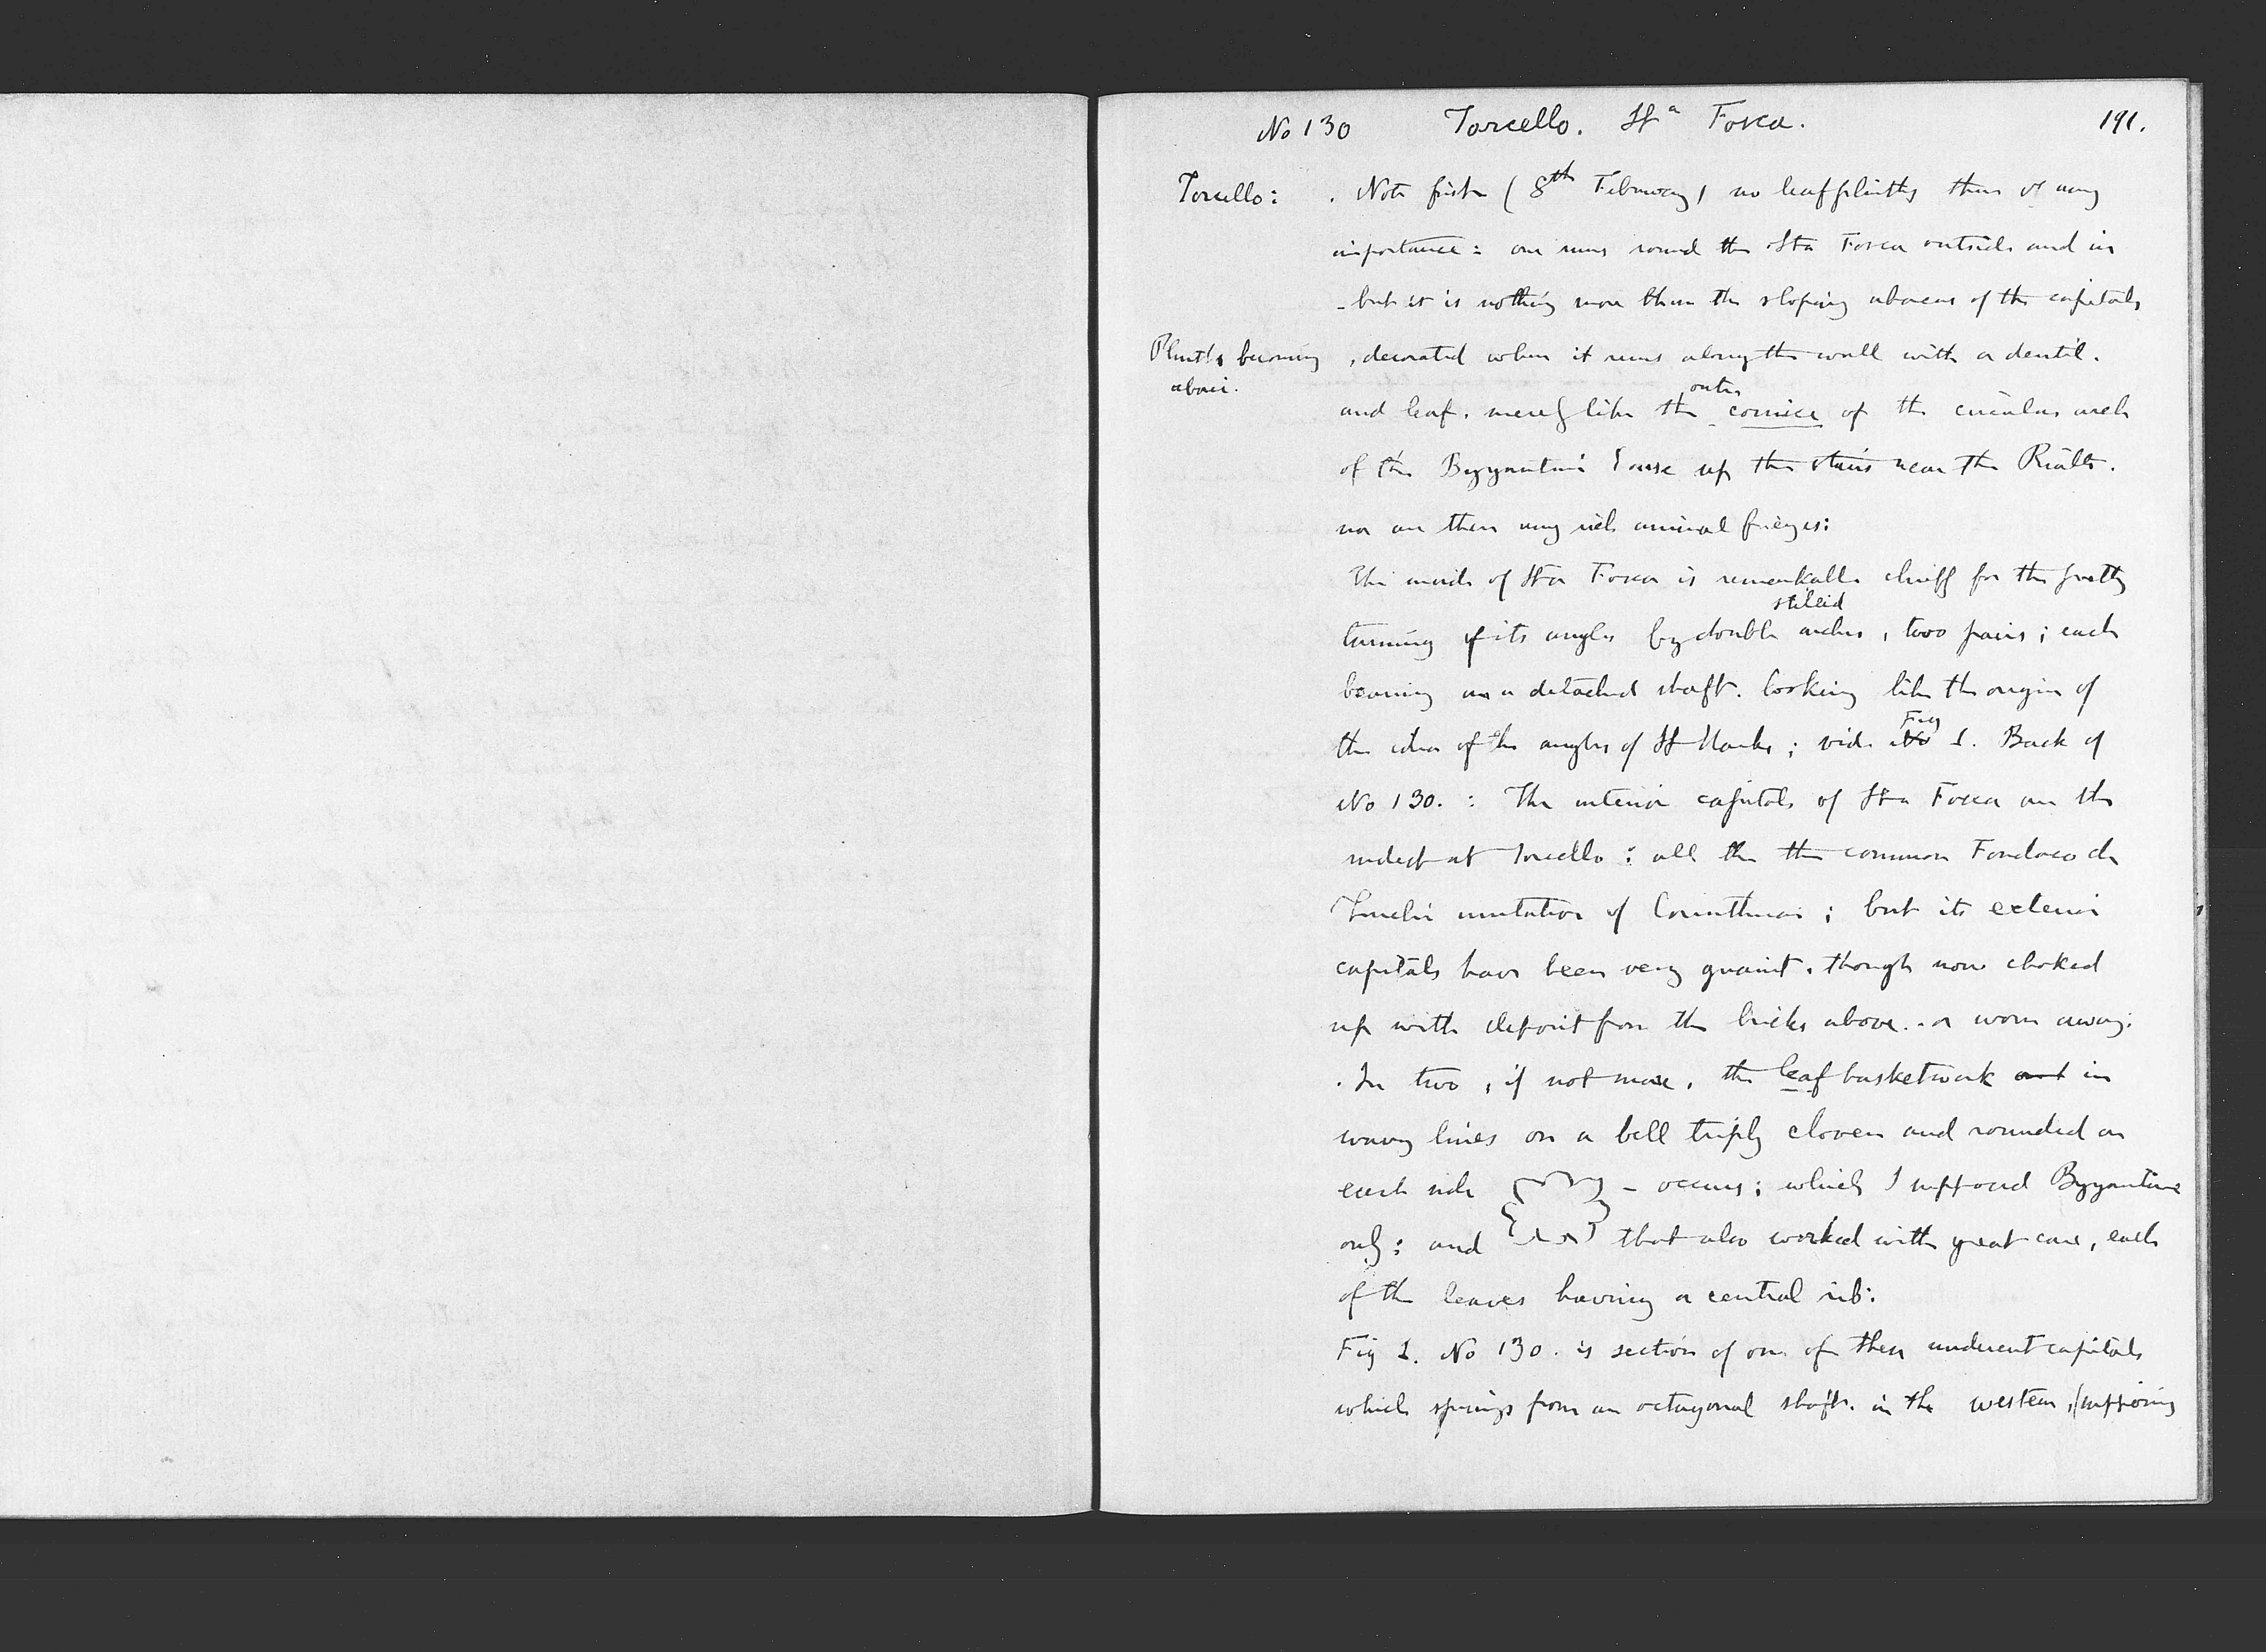 No 130 Torcello. Sta Fosca. 191.
Torcello: . Note first (8th February) no leaf plinths there of any
importance: one runs round the Sta Fosca outside and in
- but it is nothing more than the sloping abacus of the capitals
Plinths becoming abaci.
, decorated when it runs along the wall with a dentil.
and leaf. merely like the outer cornice of the circular arch
of the Byzantine house up the stairs near the Rialto.
nor are there any rich animal friezes:
The inside of Sta Fosca is remarkable chiefly for the pretty
turning of its angles by double stilted arches, two pairs; each
bearing on a detached shaft. looking like the origin of
the idea of the angles of St Marks; vide No Fig 1. Back of
No 130. : The interior capitals of Sta Fosca are the
rudest at Torcello: all the the common Fondaco de
Turchi imitation of Corinthian; but its exterior
capitals have been very quaint. though now choked
up with deposit from the bricks above.. or worn away.
. In two, if not more, the leaf basketwork and in
wavy lines on a bell triply cloven and rounded on
each side - occurs; which I supposed Byzantine
only: and that also worked with great care, each
of the leaves having a central rib:
Fig 1. No 130. is section of one of these undercut capitals
which springs from an octagonal shaft. in the western, (supposing